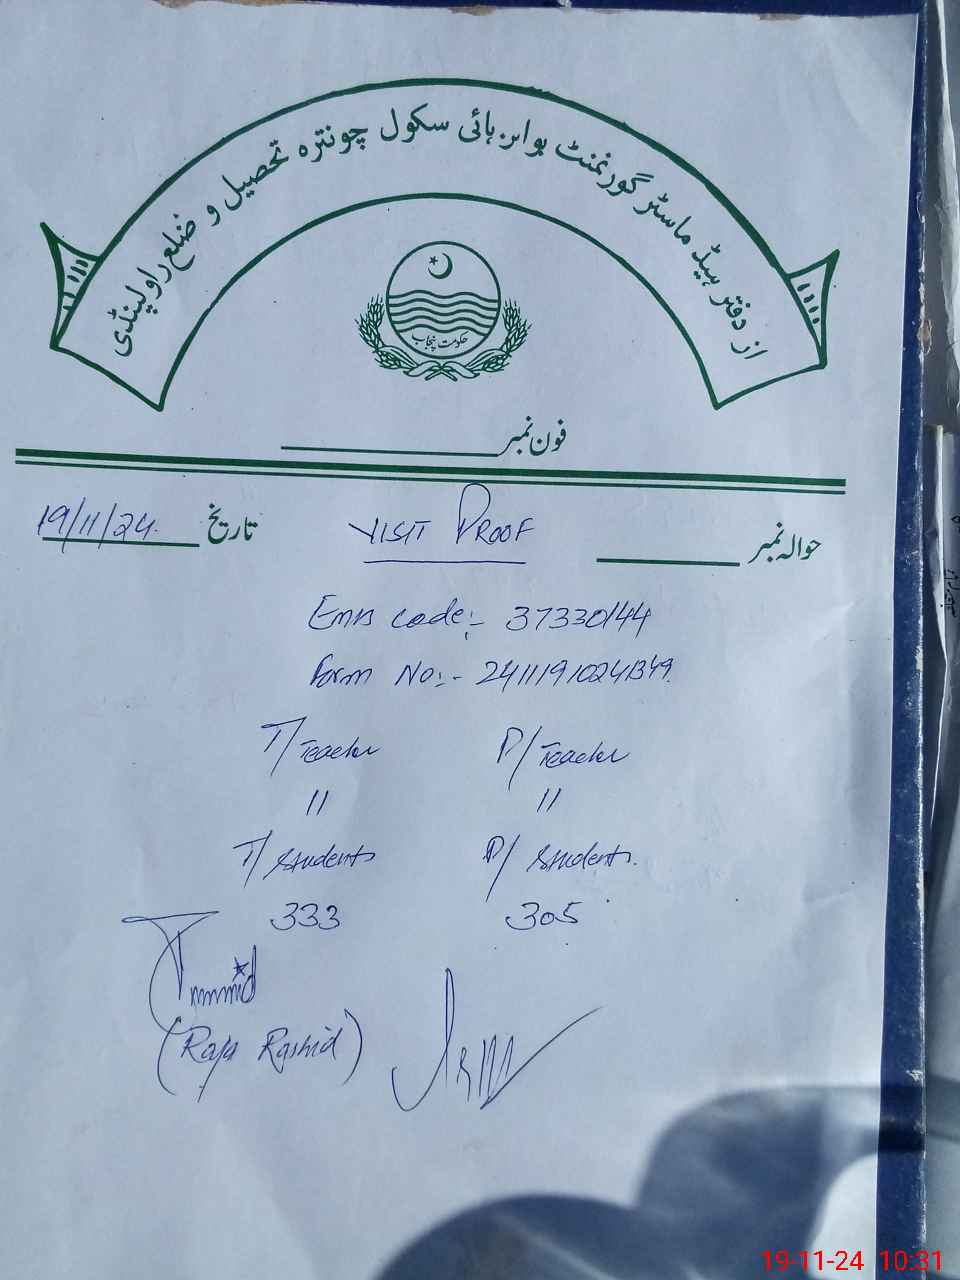 از دفتر ہیڈ ماسٹر گورنمنٹ بوائز ہائی سکول چونترہ تحصیل و ضلع راولپنڈی
حکومت پنجاب
فون نمبر
حوالہ نمبر
VISIT PROOF
تاریخ 19/11/24
Emis code:- 37330144
Form No:- 24111910241349
T/Teacher P/Teacher
11 11
T/Students P/Students.
333 305
(Raja Rashid)
19-11-24 10:31